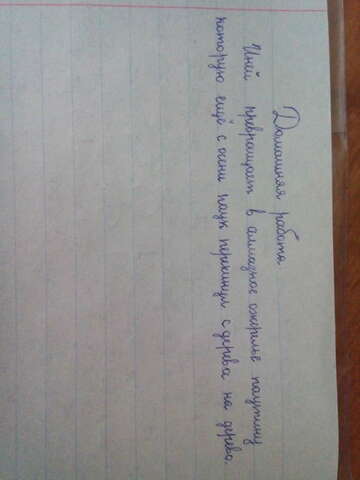 Домашняя работа
Иней превращает в алмазное ожерелье паутину
которую ещё с осени паук перекинул с дерева на дерево.